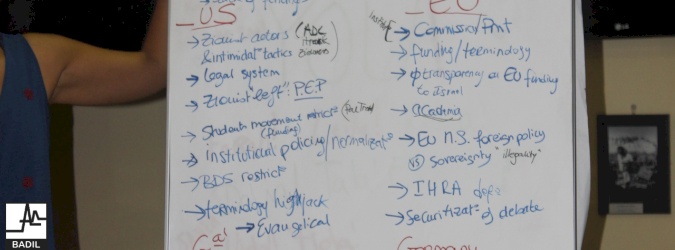 US
→ Zionist actors (ADC
& intimidat° tactics Zionists)
→ Legal system
→ Zionist "left": P.E.P
→ Students movement restrict°
(funding)
→ Institutional policing/normalizat°
→ BDS restrict°
→ terminology highjack
→ Evangelical
Ca
EU
→ Commission/Pmt
→ funding/terminology
transparency on EU funding
to Israel
→ EU n.s. foreign policy
vs sovereignty "illegality"
→ IHRA
→ Securitizat° of debate
Germany
BADIL